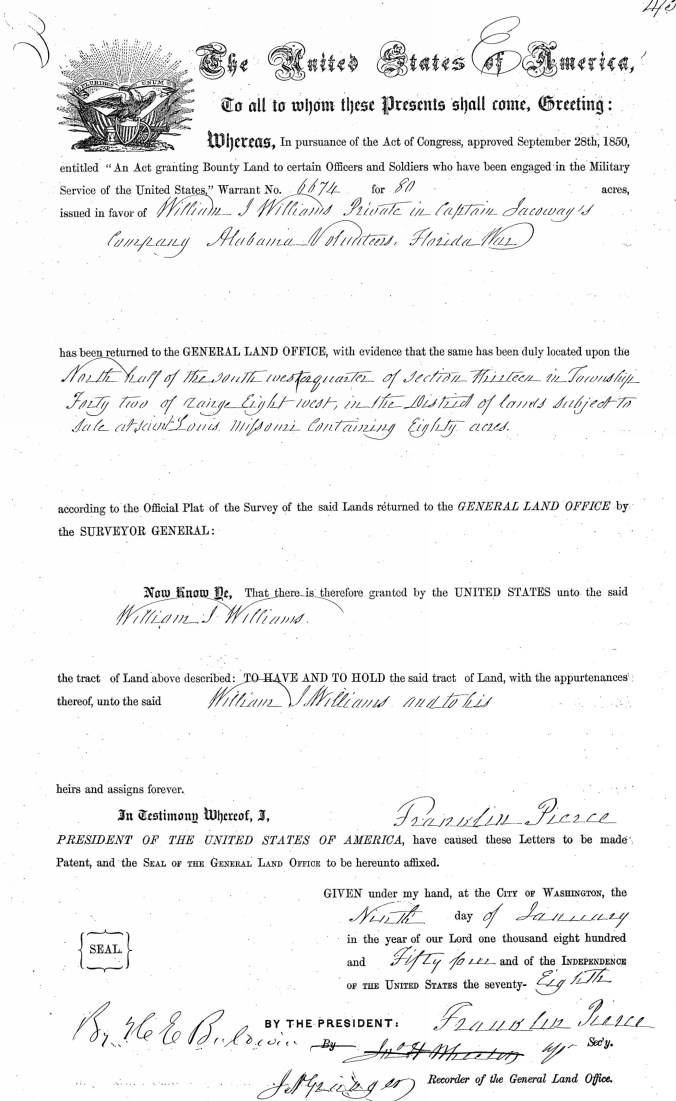 E PLURIBUS UNUM
The United States of America,
To all to whom these Presents shall come, Greeting:
Whereas, In pursuance of the Act of Congress, approved September 28th, 1850,
entitled "An Act granting Bounty Land to certain Officers and Soldiers who have been engaged in the Military
Service of the United States," Warrant No. 6674 for 80 acres,
issued in favor of William J Williams Private in Captain Jacoway's
Company Alabama Volunteers, Florida War
has been returned to the GENERAL LAND OFFICE, with evidence that the same has been duly located upon the
North half of the south west quarter of section thirteen in Township
Forty two of range Eight west, in the District of lands subject to
sale at Saint Louis, Missouri Containing Eighty acres.
according to the Official Plat of the Survey of the said Lands returned to the GENERAL LAND OFFICE by
the SURVEYOR GENERAL:
Now Know Ye, That there is therefore granted by the UNITED STATES unto the said
William J Williams
the tract of Land above described: TO HAVE AND TO HOLD the said tract of Land, with the appurtenances
thereof, unto the said William J Williams and to his
heirs and assigns forever.
In Testimony Whereof, I, Franklin Pierce
PRESIDENT OF THE UNITED STATES OF AMERICA, have caused these Letters to be made
Patent, and the SEAL OF THE GENERAL LAND OFFICE to be hereunto affixed.
GIVEN under my hand, at the CITY OF WASHINGTON, the
Ninth day of January
in the year of our Lord one thousand eight hundred
and Fifty four and of the INDEPENDENCE
OF THE UNITED STATES the seventy-Eighth
SEAL
BY THE PRESIDENT: Franklin Pierce
By H E Baldwin By Sec'y.
Recorder of the General Land Office.